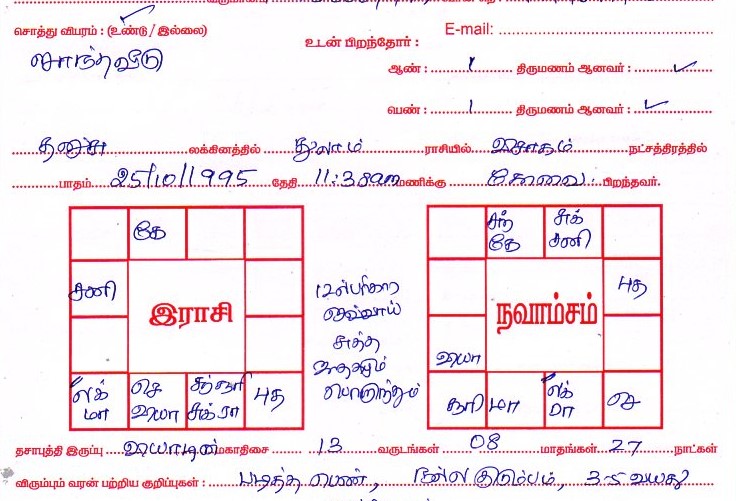 சொத்து விபரம் : (உண்டு / இல்லை)
சொந்தவீடு
E-mail:
உடன் பிறந்தோர் :
ஆண் : 1 திருமணம் ஆனவர் : ✓
பெண் : 1 திருமணம் ஆனவர் : ✓
தனுசு லக்கினத்தில் துலாம் ராசியில் விசாகம் நட்சத்திரத்தில்
பாதம் 25/10/1995 தேதி 11:38am மணிக்கு கோவை பிறந்தவர்.
கே
சனி
இராசி
லக் மா
செ வியா
சந் சூரி சுக் ரா
புத
பரிகார செவ்வாய் சுத்த ஜாதகமும் பொருந்தும்
சந் கே
சுக் சனி
புத
நவாம்சம்
வியா
சூரி
மா
லக் ரா
செ
தசாபுத்தி இருப்பு வியாழன் மகாதிசை 13 வருடங்கள் 08 மாதங்கள் 27 நாட்கள்
விரும்பும் வரன் பற்றிய குறிப்புகள் : படித்த பெண், நல்ல குடும்பம், 3-5 வயது